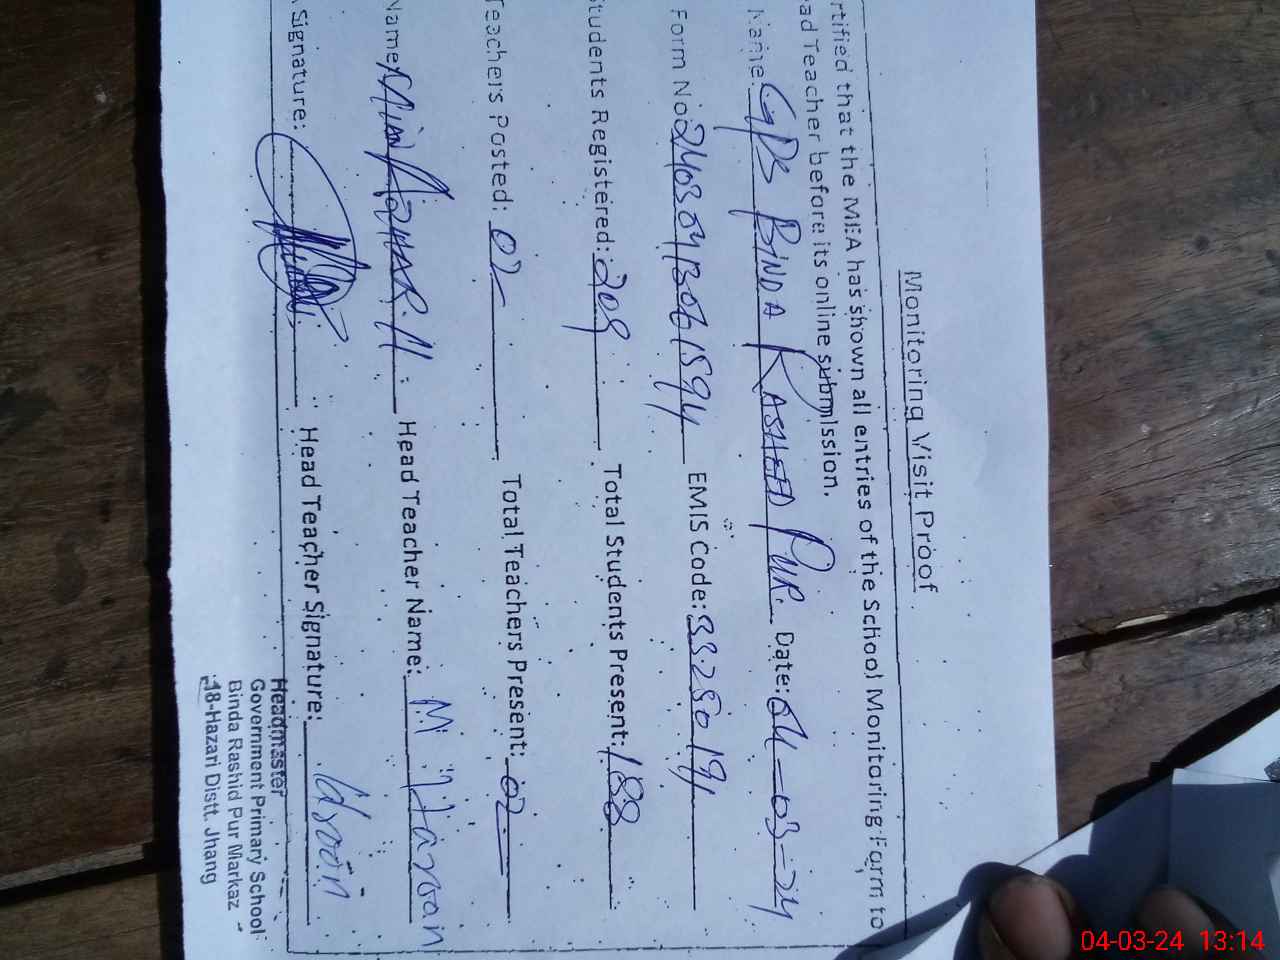 Monitoring Visit Proof
rtified that the MEA has shown all entries of the School Monitoring Form to
ad Teacher before its online submission.
Name: GPS BINDA RASHEED PUR. Date: 04-03-24
Form No: EMIS Code: 33250191
Students Registered: 209 Total Students Present: 188
Teachers Posted: 02 Total Teachers Present: 02
Name: Head Teacher Name: M. Hassan
Signature: Head Teacher Signature:
Headmaster
Government Primary School
Binda Rashid Pur Markaz
18-Hazari Distt. Jhang
04-03-24 13:14